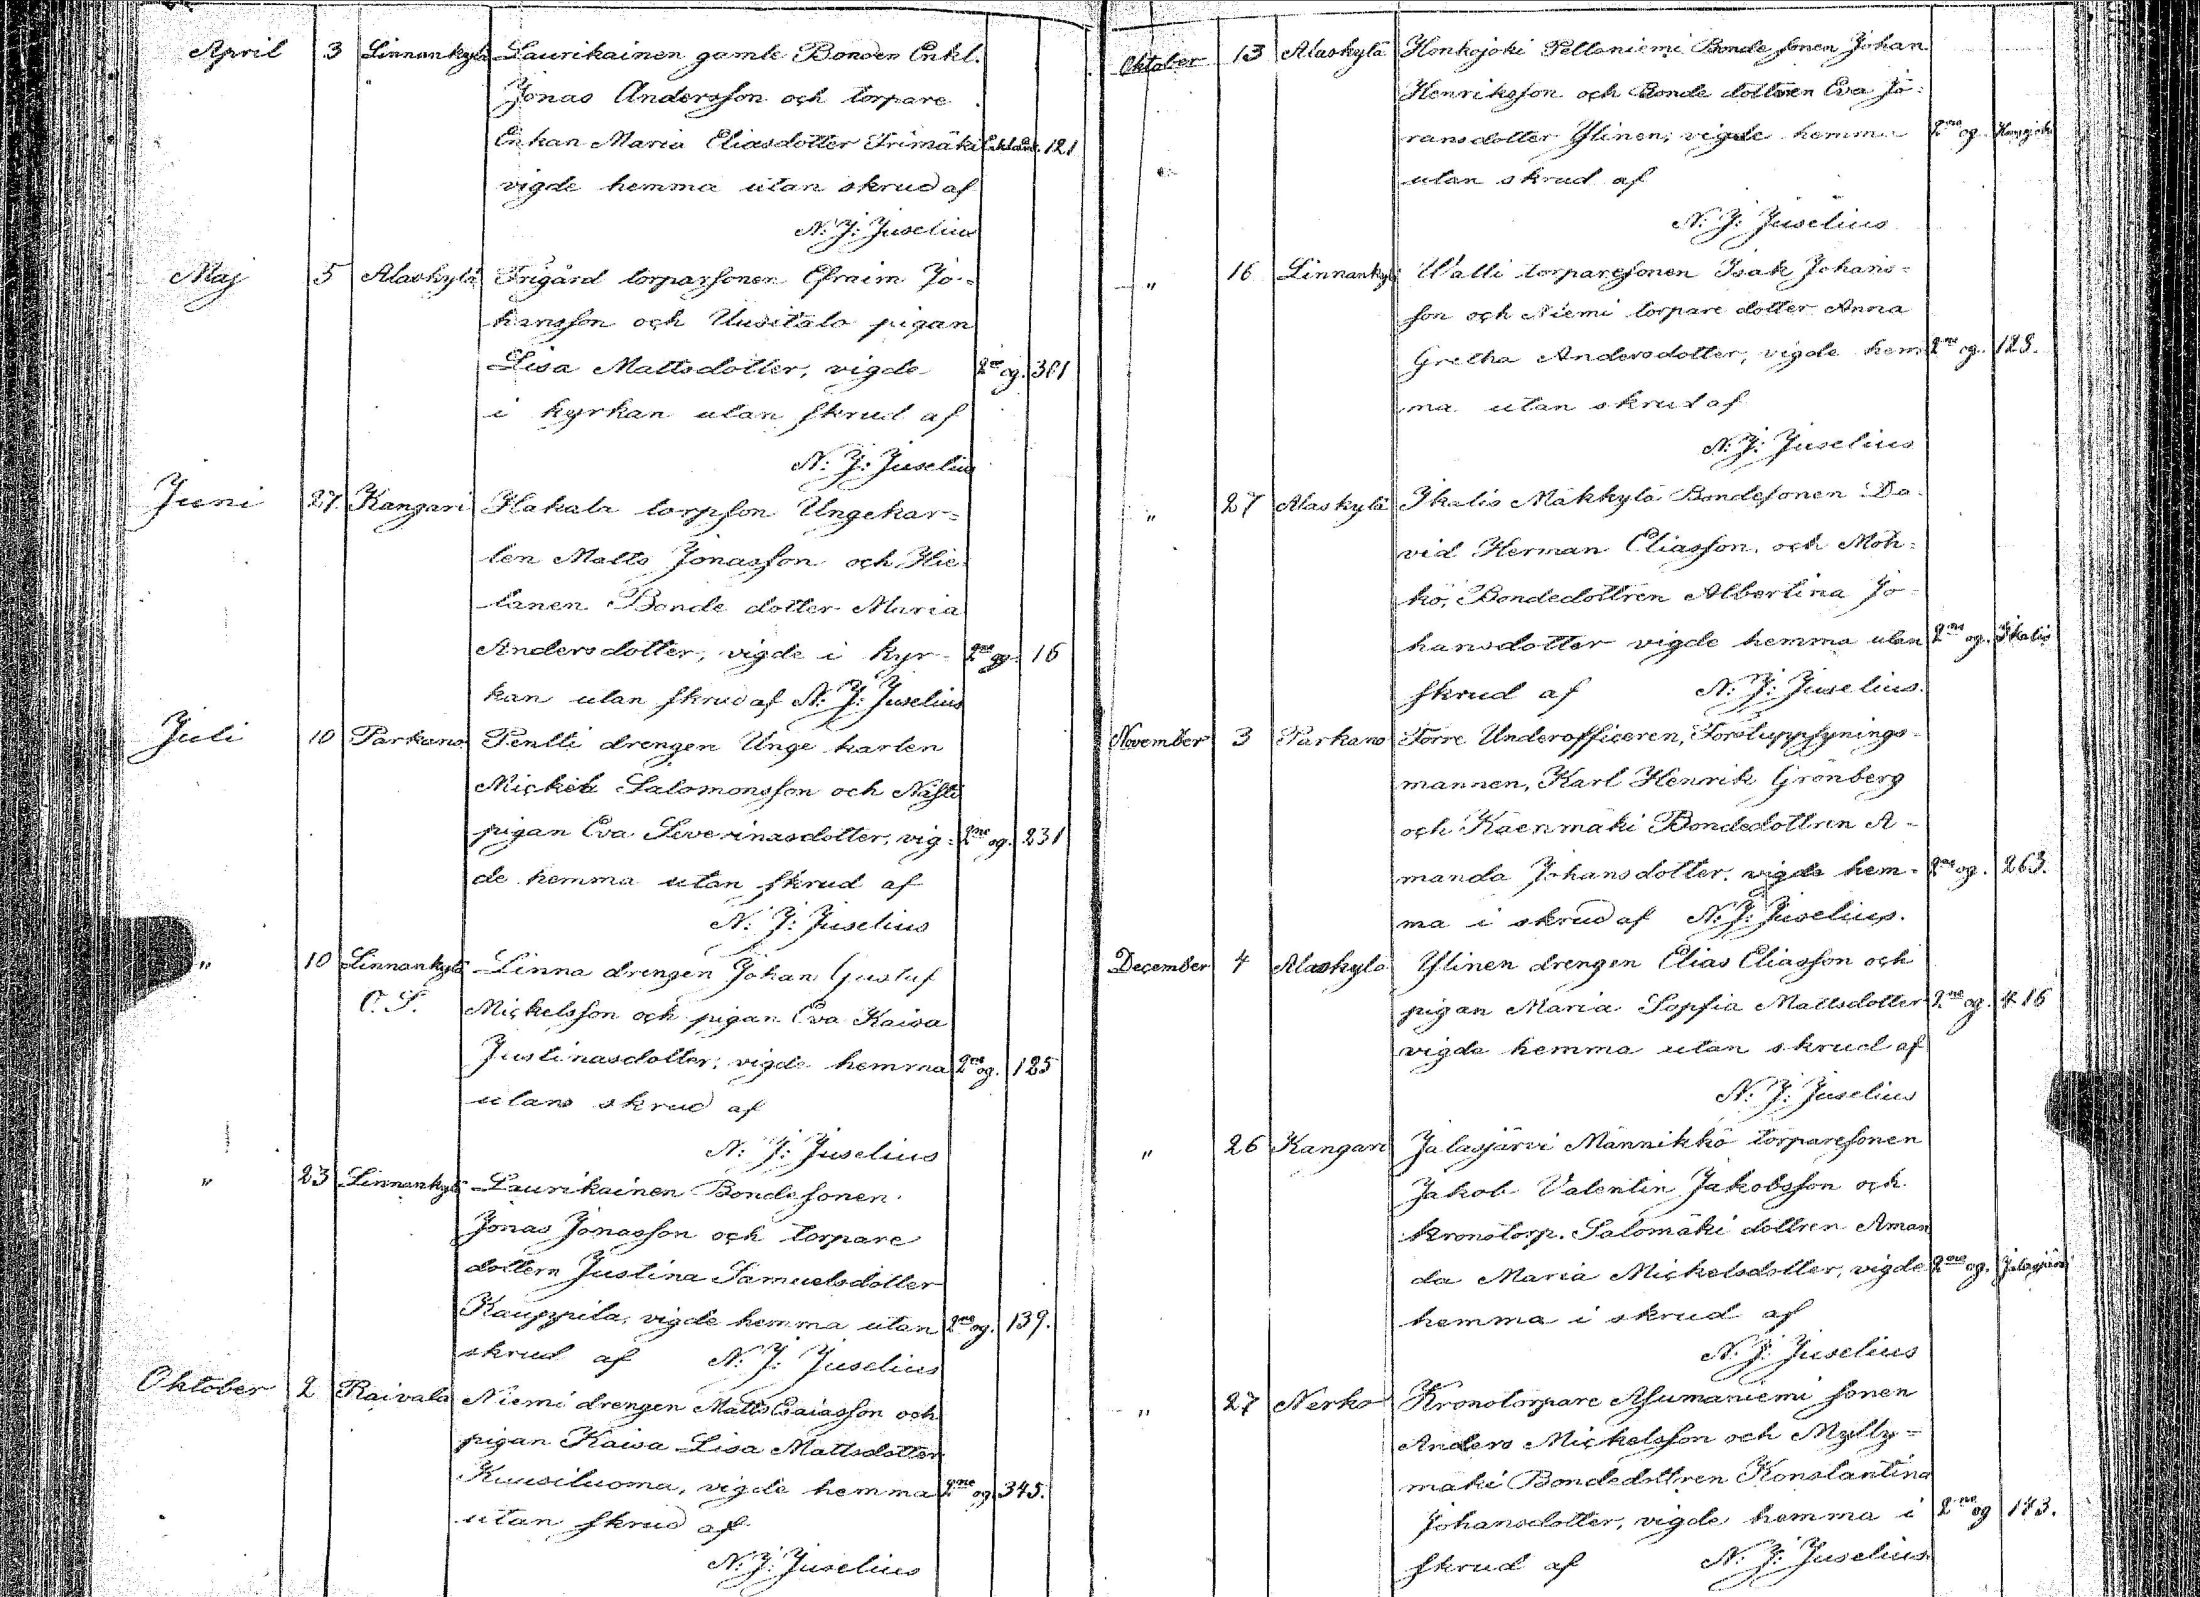 April 3 Linnankylä Laurikainen gamle Bonden Enkl.
Jonas Andersson och torpare
Enkan Maria Eliasdotter Trimäki 121
vigde hemma utan skrud af
N: J: Juselius
Maj 5 Alaskylä Frigård torparsonen Efraim Jo-
hansson och Uusitalo pigan
Lisa Mattsdotter, vigde 2ne og. 301
i kyrkan utan skrud af
N: J: Juselius
Juni 27. Kangari Hakala torpson Ungekar=
len Matts Jonasson och Hie
tanen Bonde dotter Maria
Andersdotter, vigde i kyr- 2ne og. 16
kan utan skrud af N: J: Juselius
Juli 10 Parkano Pentti drengen Unge karlen
Mickel Salomonsson och Näsli
pigan Eva Severinasdotter, vig= 2ne og. 231
de hemma utan skrud af
N: J: Juselius
" 10 Linnankylä Linna drengen Johan Gustaf
O. S. Mickelsson och pigan Eva Kaisa
Justinasdotter, vigde hemma 2ne og. 125
utan skrud af
N: J: Juselius
" 23 Linnankylä Laurikainen Bondesonen
Jonas Jonasson och torpare
dottern Justina Samuelsdotter
Kauppila, vigde hemma utan 2ne og. 139.
skrud af N: J: Juselius
Oktober 2 Raivala Niemi drengen Matts Esaiasson och
pigan Kaisa Lisa Mattsdotter
Kuusiluoma, vigde hemma 2ne og 345.
utan skrud af
N: J: Juselius
Oktober 13 Alaskylä Honkojoki Pelloniemi Bonde sonen Johan
Henriksson och Bonde dottren Eva Jö=
ransdotter Ylinen, vigde hemma 2ne og.
utan skrud af
N: J: Juselius
" 16 Linnankylä Walli torparesonen Isak Johans=
son och Niemi torpare dotter Anna
Gretha Andersdotter, vigde hem 2ne og. 128.
ma utan skrud af
N: J: Juselius
" 27 Alaskylä Ikalis Mäkkylä Bondesonen Da-
vid Herman Eliasson, och Möh=
kö, Bondedottren Albertina Jo-
hansdotter vigde hemma utan 2ne og. Ikalis
skrud af N: J: Juselius.
November 3 Parkano Förre Underofficeren, Forstuppsynings-
mannen, Karl Henrik Grönberg
och Käenmäki Bondedottren A-
manda Johansdotter, vigde hem- 2ne og. 263.
ma i skrud af N: J: Juselius.
December 4 Alaskylä Ylinen drengen Elias Eliasson och
pigan Maria Sopfia Mattsdotter 2ne og. 416
vigde hemma utan skrud af
N: J: Juselius
" 26 Kangari Jalasjärvi Männikkö torparesonen
Jakob Valentin Jakobsson och
kronotorp. Salomäki dottren Aman
da Maria Mickelsdotter, vigde 2ne og. Jalasjärvi
hemma i skrud af
N: J: Juselius
" 27 Nerko Kronotorpare Asumaniemi sonen
Anders Mickelsson och Mylly=
mäki Bondedottren Konstantina
Johansdotter, vigde hemma i 2ne og 173.
skrud af N: J: Juselius